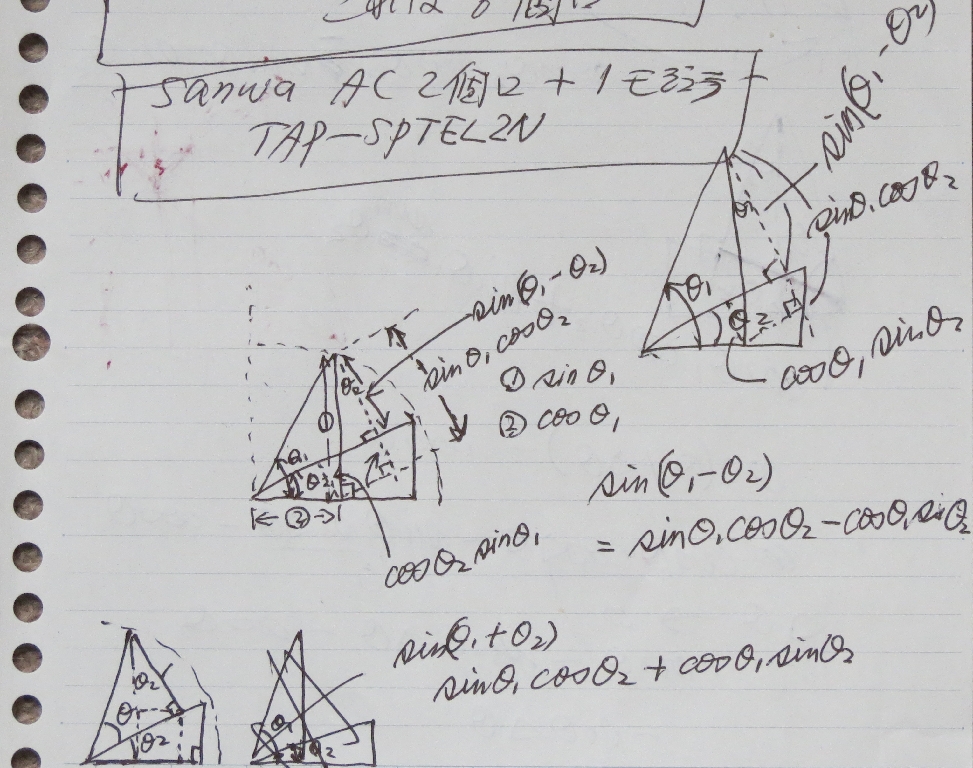 Sanwa AC 2個口 + 1モジュラ
TAP-SPTEL2N
sin(θ₁-θ₂)
sinθ₁cosθ₂
θ₁
θ₂
cosθ₁sinθ₂
sin(θ₁-θ₂)
sinθ₁cosθ₂
① sinθ₁
② cosθ₁
θ₂
①
θ₁
θ₂
②
cosθ₂sinθ₁
sin(θ₁-θ₂)
= sinθ₁cosθ₂-cosθ₁sinθ₂
sin(θ₁+θ₂)
sinθ₁cosθ₂+cosθ₁sinθ₂
θ₂
θ
θ₂
θ₁
θ₂